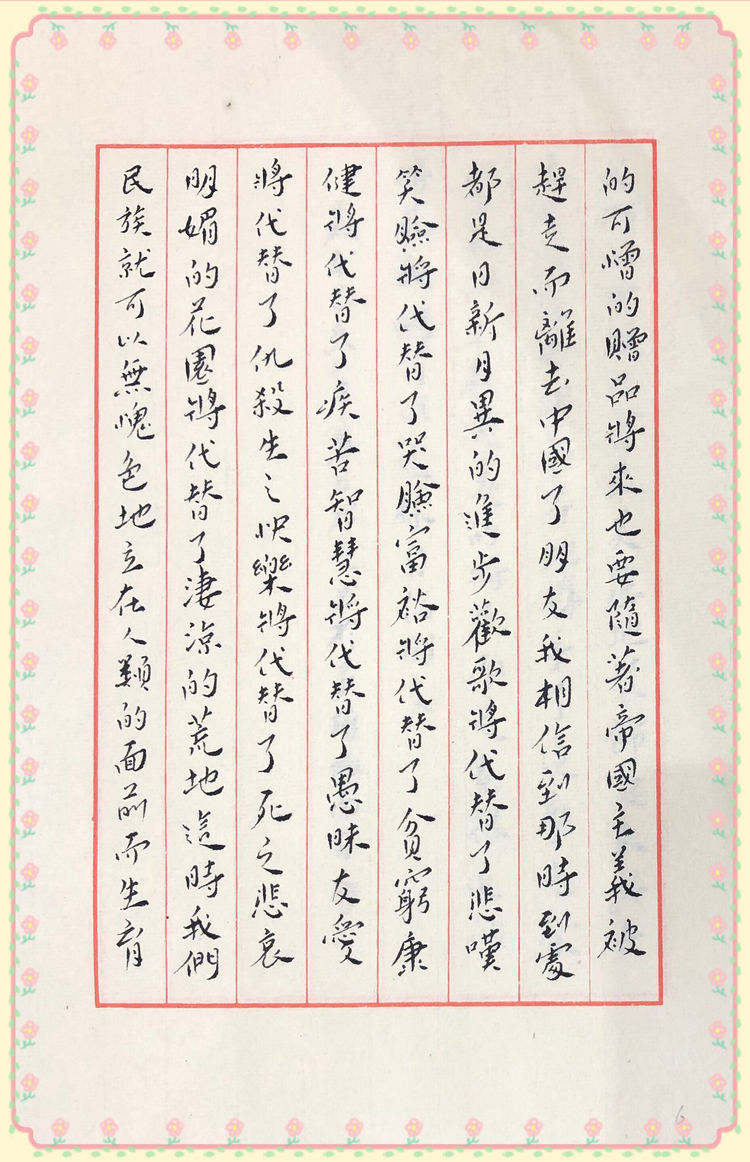 的可憎的贈品將來也要隨著帝國主義被
趕走而離去中國了朋友我相信到那時到處
都是日新月異的進步歡歌將代替了悲嘆
笑臉將代替了哭臉富裕將代替了貧窮康
健將代替了疾苦智慧將代替了愚昧友愛
將代替了仇殺生之快樂將代替了死之悲哀
明媚的花園將代替了淒涼的荒地這時我們
民族就可以無愧色地立在人類的面前而生育
6